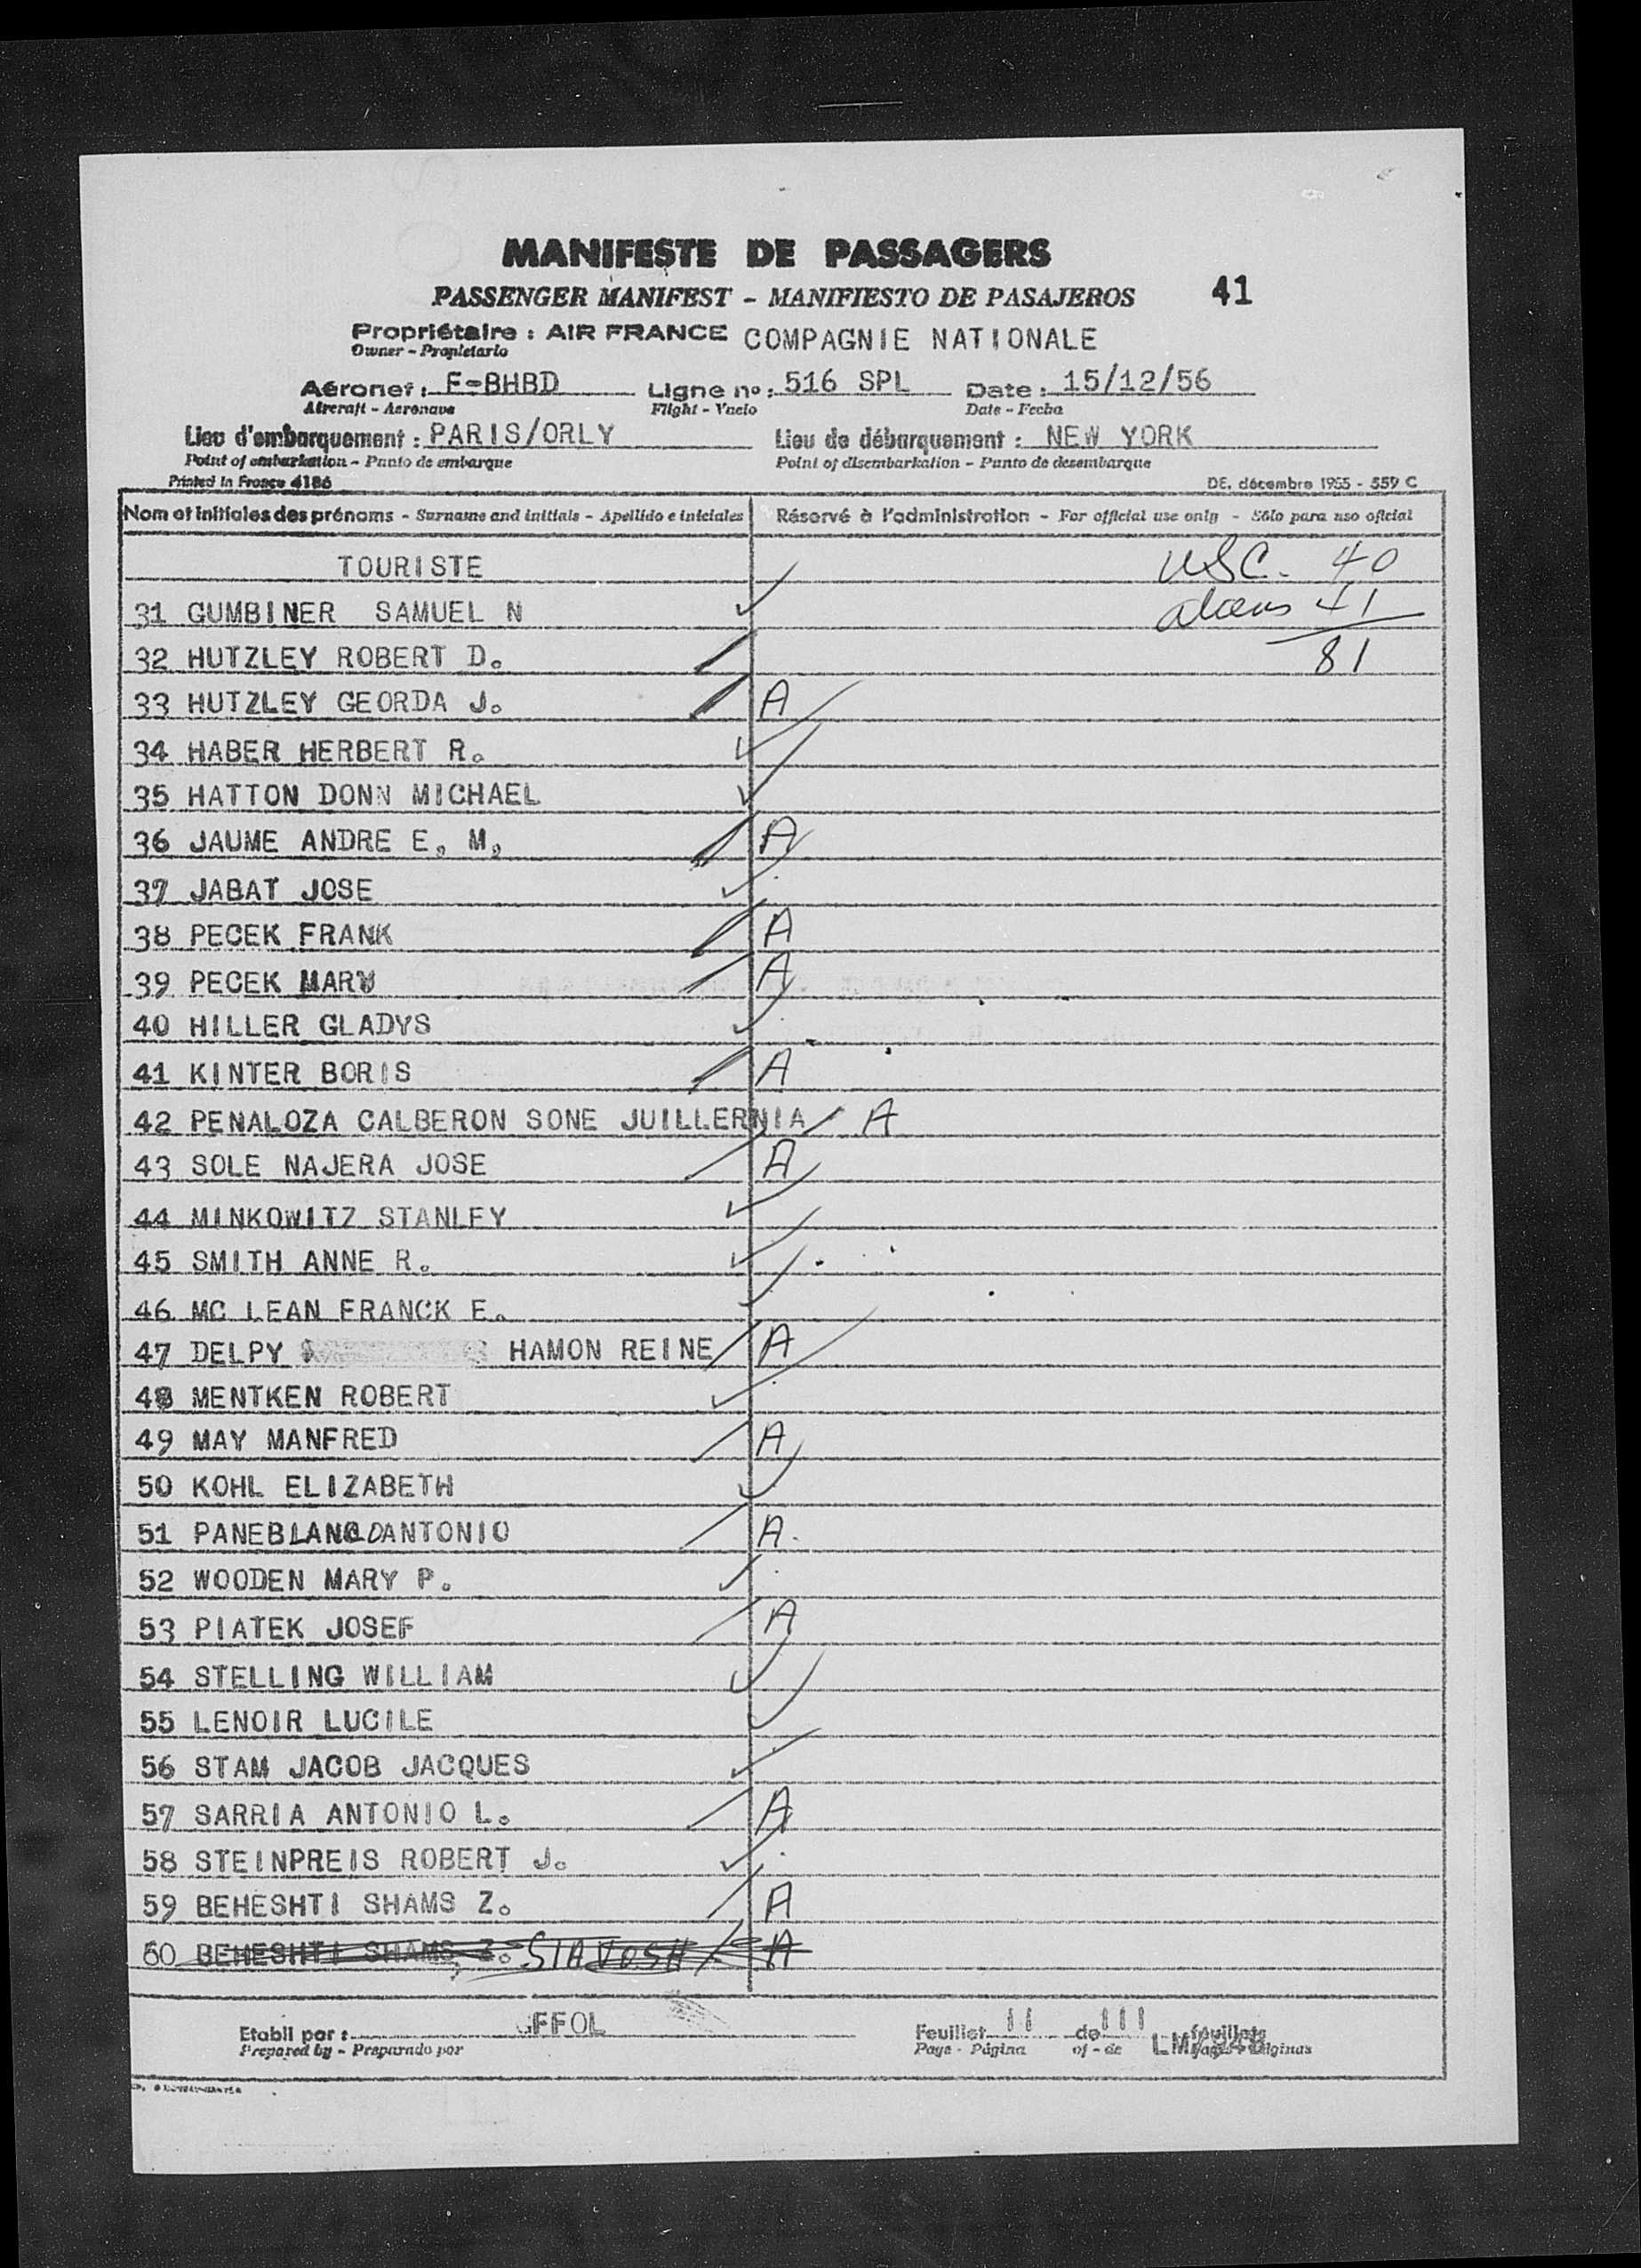 MANIFESTE DE PASSAGERS
PASSENGER MANIFEST - MANIFIESTO DE PASAJEROS 41
Propriétaire : AIR FRANCE COMPAGNIE NATIONALE
Owner - Propietario
Aéronef : F-BHBD Ligne nº : 516 SPL Date : 15/12/56
Aircraft - Aeronave Flight - Vuelo Date - Fecha
Lieu d'embarquement : PARIS/ORLY Lieu de débarquement : NEW YORK
Point of embarkation - Punto de embarque Point of disembarkation - Punto de desembarque
Printed in France 4186 DE. décembre 1955 - 559 C
Nom et initiales des prénoms - Surname and initials - Apellido e iniciales Réservé à l'administration - For official use only - Sólo para uso oficial
TOURISTE USC. 40
31 GUMBINER SAMUEL N aliens 41
32 HUTZLEY ROBERT D. 81
33 HUTZLEY GEORDA J. A
34 HABER HERBERT R.
35 HATTON DONN MICHAEL
36 JAUME ANDRE E, M, A
37 JABAT JOSE
38 PECEK FRANK A
39 PECEK MARY A
40 HILLER GLADYS
41 KINTER BORIS A
42 PENALOZA CALBERON SONE JUILLERNIA A
43 SOLE NAJERA JOSE A
44 MINKOWITZ STANLEY
45 SMITH ANNE R.
46 MC LEAN FRANCK E.
47 DELPY HAMON REINE A
48 MENTKEN ROBERT
49 MAY MANFRED A
50 KOHL ELIZABETH
51 PANEBLANCO ANTONIO A.
52 WOODEN MARY P.
53 PIATEK JOSEF A
54 STELLING WILLIAM
55 LENOIR LUCILE
56 STAM JACOB JACQUES
57 SARRIA ANTONIO L. A
58 STEINPREIS ROBERT J.
59 BEHESHTI SHAMS Z. A
60 BEHESHTI SHAMS Z. SIAVOSH A
Etabli par : GFFOL Feuillet II de III feuillets
Prepared by - Preparado por Page - Página of - de